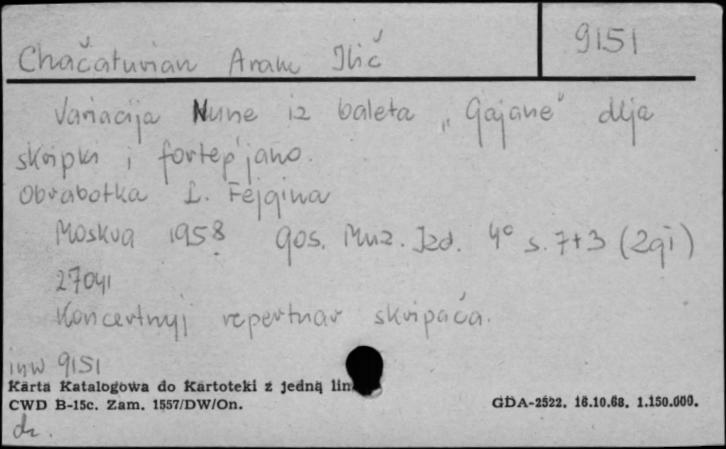 Chačaturian Aram Ilič
9151
Variacija Nune iz baleta „Gajane" dlja
skripki i fortep'jano.
Obrabotka L. Fejgina
Moskva 1958 Gos. Muz. Izd. 4° s. 7+3 (2gł)
27041
Koncertnyj repertuar skripača.
inw 9151
Karta Katalogowa do Kartoteki z jedną lin
CWD B-15c. Zam. 1557/DW/On.
GDA-2522. 16.10.68. 1.150.000.
dr.